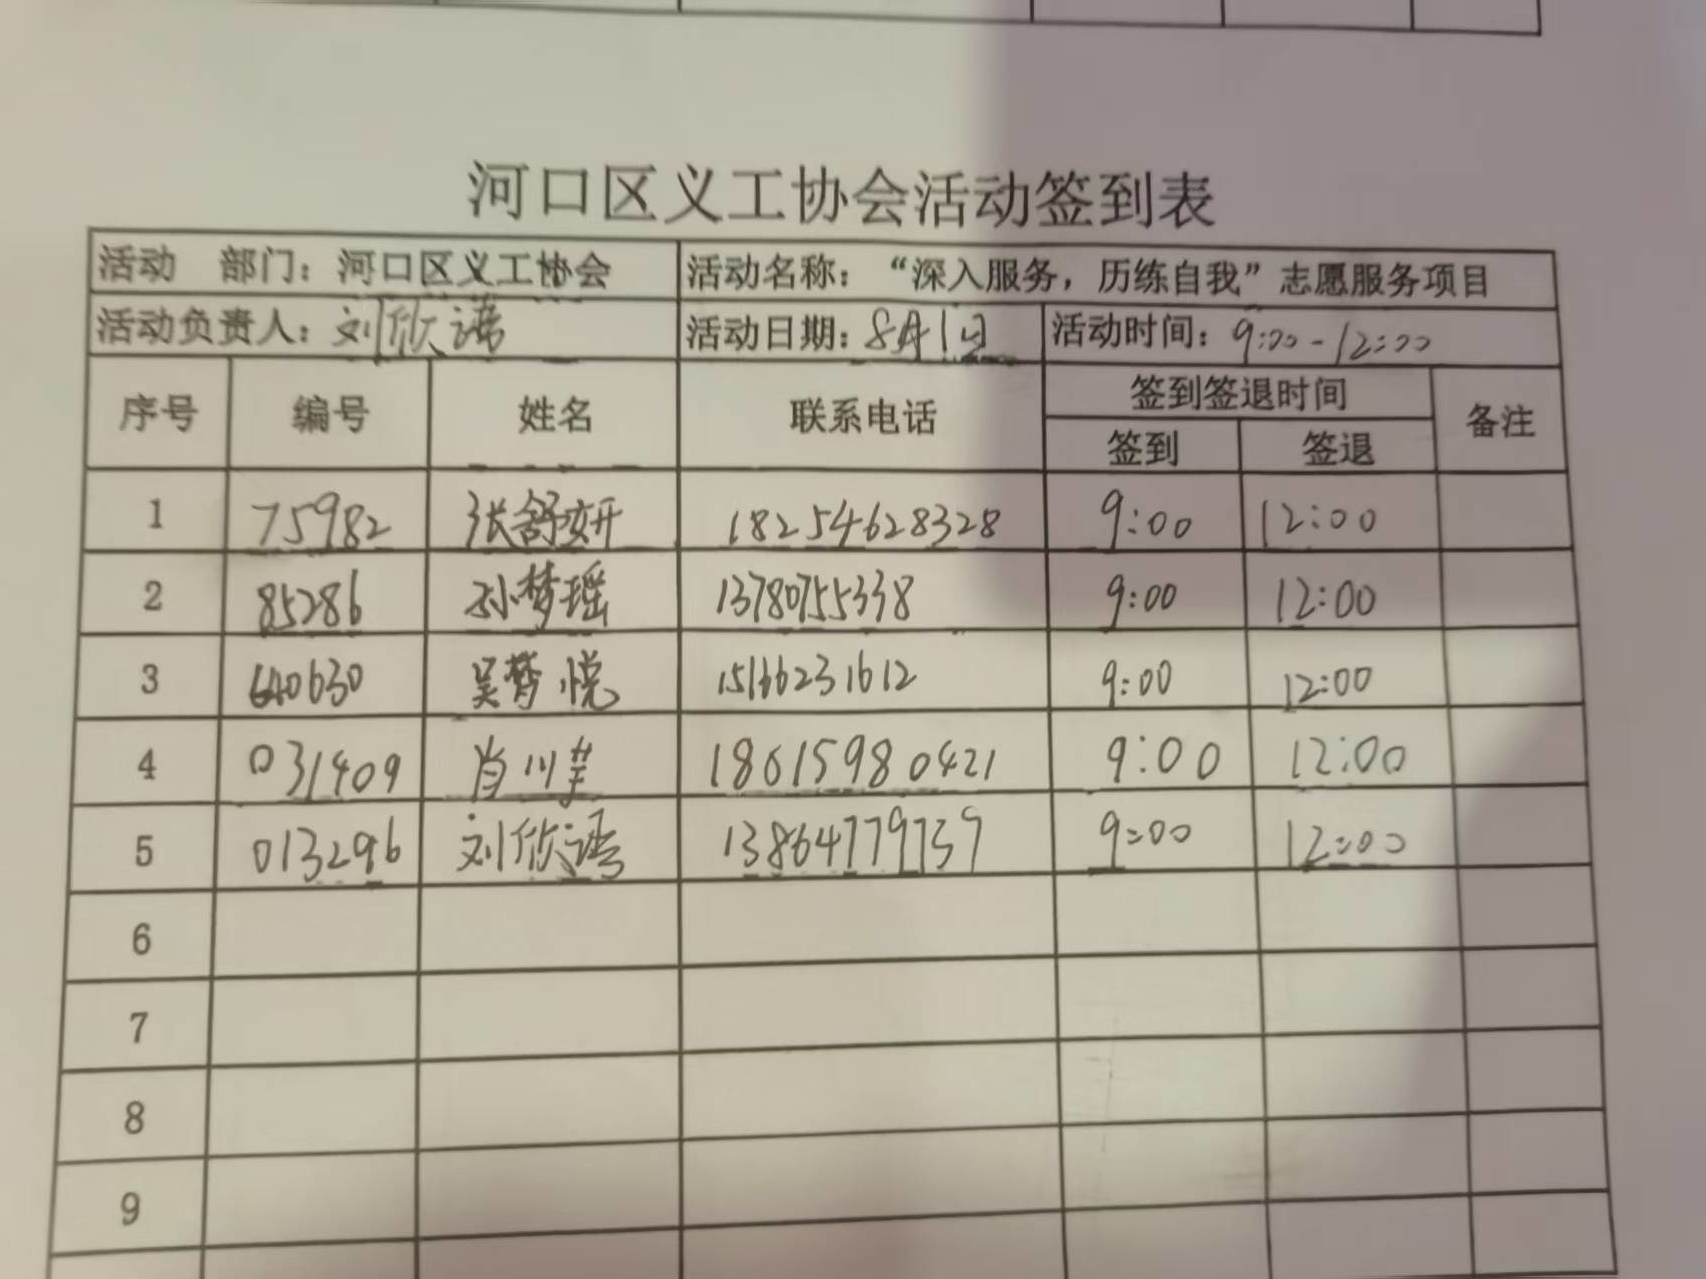 河口区义工协会活动签到表
活动 部门：河口区义工协会 活动名称：“深入服务，历练自我”志愿服务项目
活动负责人：刘欣语 活动日期：8月1日 活动时间：9:00-12:00
序号 编号 姓名 联系电话 签到签退时间 备注
签到 签退
1 75982 张舒妍 18254628328 9:00 12:00
2 85286 孙梦瑶 13780755338 9:00 12:00
3 640630 吴梦悦 15166231612 9:00 12:00
4 031409 肖川 18615980421 9:00 12:00
5 013296 刘欣语 13864779739 9:00 12:00
6
7
8
9